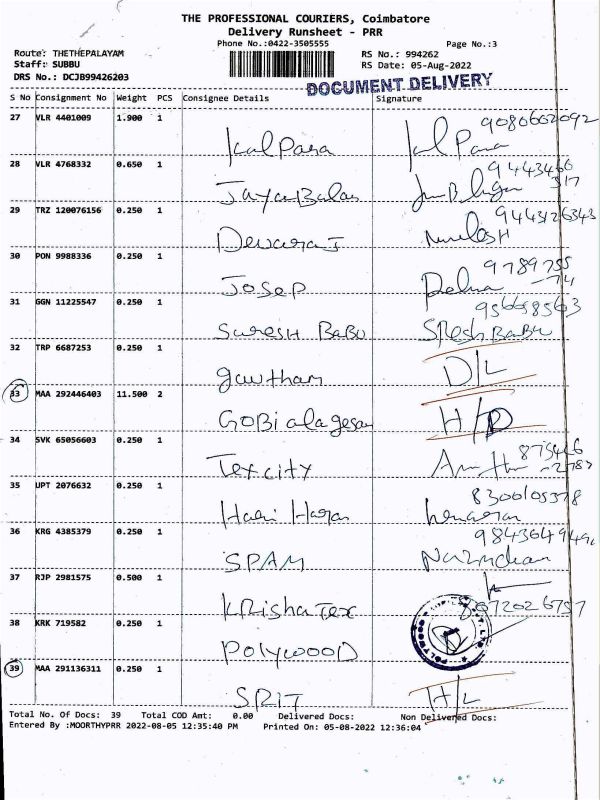 THE PROFESSIONAL COURIERS, Coimbatore
Delivery Runsheet - PRR
Phone No.:0422-3505555 Page No.:3
Route: THETHEPALAYAM RS No.: 994262
Staff: SUBBU RS Date: 05-Aug-2022
DRS No.: DCJB99426203
DOCUMENT DELIVERY
S No Consignment No Weight PCS Consignee Details Signature
27 VLR 4401009 1.900 1
9080662092
Kalpana Kalpana
28 VLR 4768332 0.650 1
9443466
317
JayaBalan
29 TRZ 120076156 0.250 1
9443126343
Devaraj
30 PON 9988336 0.250 1
9789755
74
Josep
31 GGN 11225547 0.250 1
956658563
Suresh Babu
32 TRP 6687253 0.250 1
gautham D/L
33 MAA 292446403 11.500 2
GOBi alagesan H/D
34 SVK 65056603 0.250 1
Texcity
35 UPT 2076632 0.250 1
8300105378
Hari Haran
36 KRG 4385379 0.250 1
SPAM
37 RJP 2981575 0.500 1
8072026757
KRisha Tex
38 KRK 719582 0.250 1
POlyWOOD
39 MAA 291136311 0.250 1
SRIT H/L
Total No. Of Docs: 39 Total COD Amt: 0.00 Delivered Docs: Non Delivered Docs:
Entered By :MOORTHYPRR 2022-08-05 12:35:40 PM Printed On: 05-08-2022 12:36:04